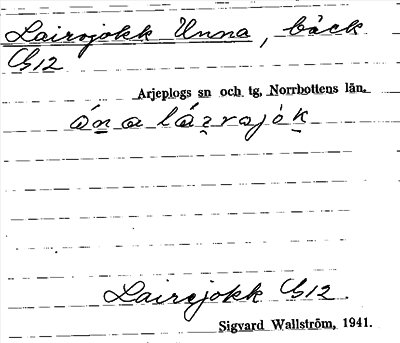 Lairojokk Unna, bäck
G12
Arjeplogs sn och tg, Norrbottens län.
Lairojokk G12
Sigvard Wallström, 1941.